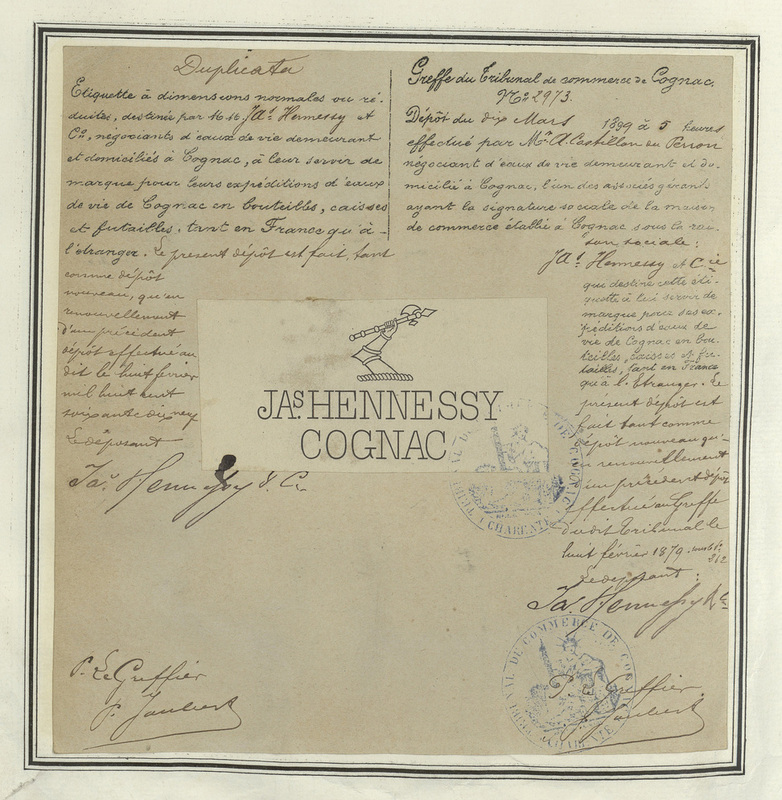 Duplicata
Etiquette à dimensions normales ou ré-
duites, destinée par M.M. Jas Hennessy et
Co, négociants d'eaux de vie demeurant
et domiciliés à Cognac, à leur servir de
marque pour leurs expéditions d'eaux
de vie de Cognac en bouteilles, caisses
et futailles, tant en France qu'à
l'étranger. Le présent dépôt est fait, tant
comme dépôt
nouveau, qu'en
renouvellement
d'un précédent
dépôt effectué au
dit le huit février
mil huit cent
soixante dix neuf
Le déposant
Jas Hennessy & Co
P. Le Greffier
P. Jaubert
Greffe du Tribunal de commerce de Cognac.
No 2973.
Dépôt du dix Mars 1899 à 5 heures
effectué par Mr A. Castillon du Perron
négociant d'eaux de vie demeurant et do-
micilié à Cognac, l'un des associés gérants
ayant la signature sociale de la maison
de commerce établie à Cognac sous la rai-
son sociale:
Jas Hennessy et Cie
que destine cette éti-
quette à lui servir de
marque pour ses ex-
péditions d'eaux de
vie de Cognac en bou-
teilles, caisses et fu-
tailles, tant en France
qu'à l'Etranger. Le
présent dépôt est
fait tant comme
dépôt nouveau qu'-
en renouvellement
d'un précédent dépôt
effectué au Greffe
dudit Tribunal le
huit février 1879
Le déposant:
Jas Hennessy & Co
P. Le Greffier
P. Jaubert
JAS. HENNESSY
COGNAC
TRIBUNAL DE COMMERCE DE COGNAC
CHARENTE
TRIBUNAL DE COMMERCE DE COGNAC
CHARENTE